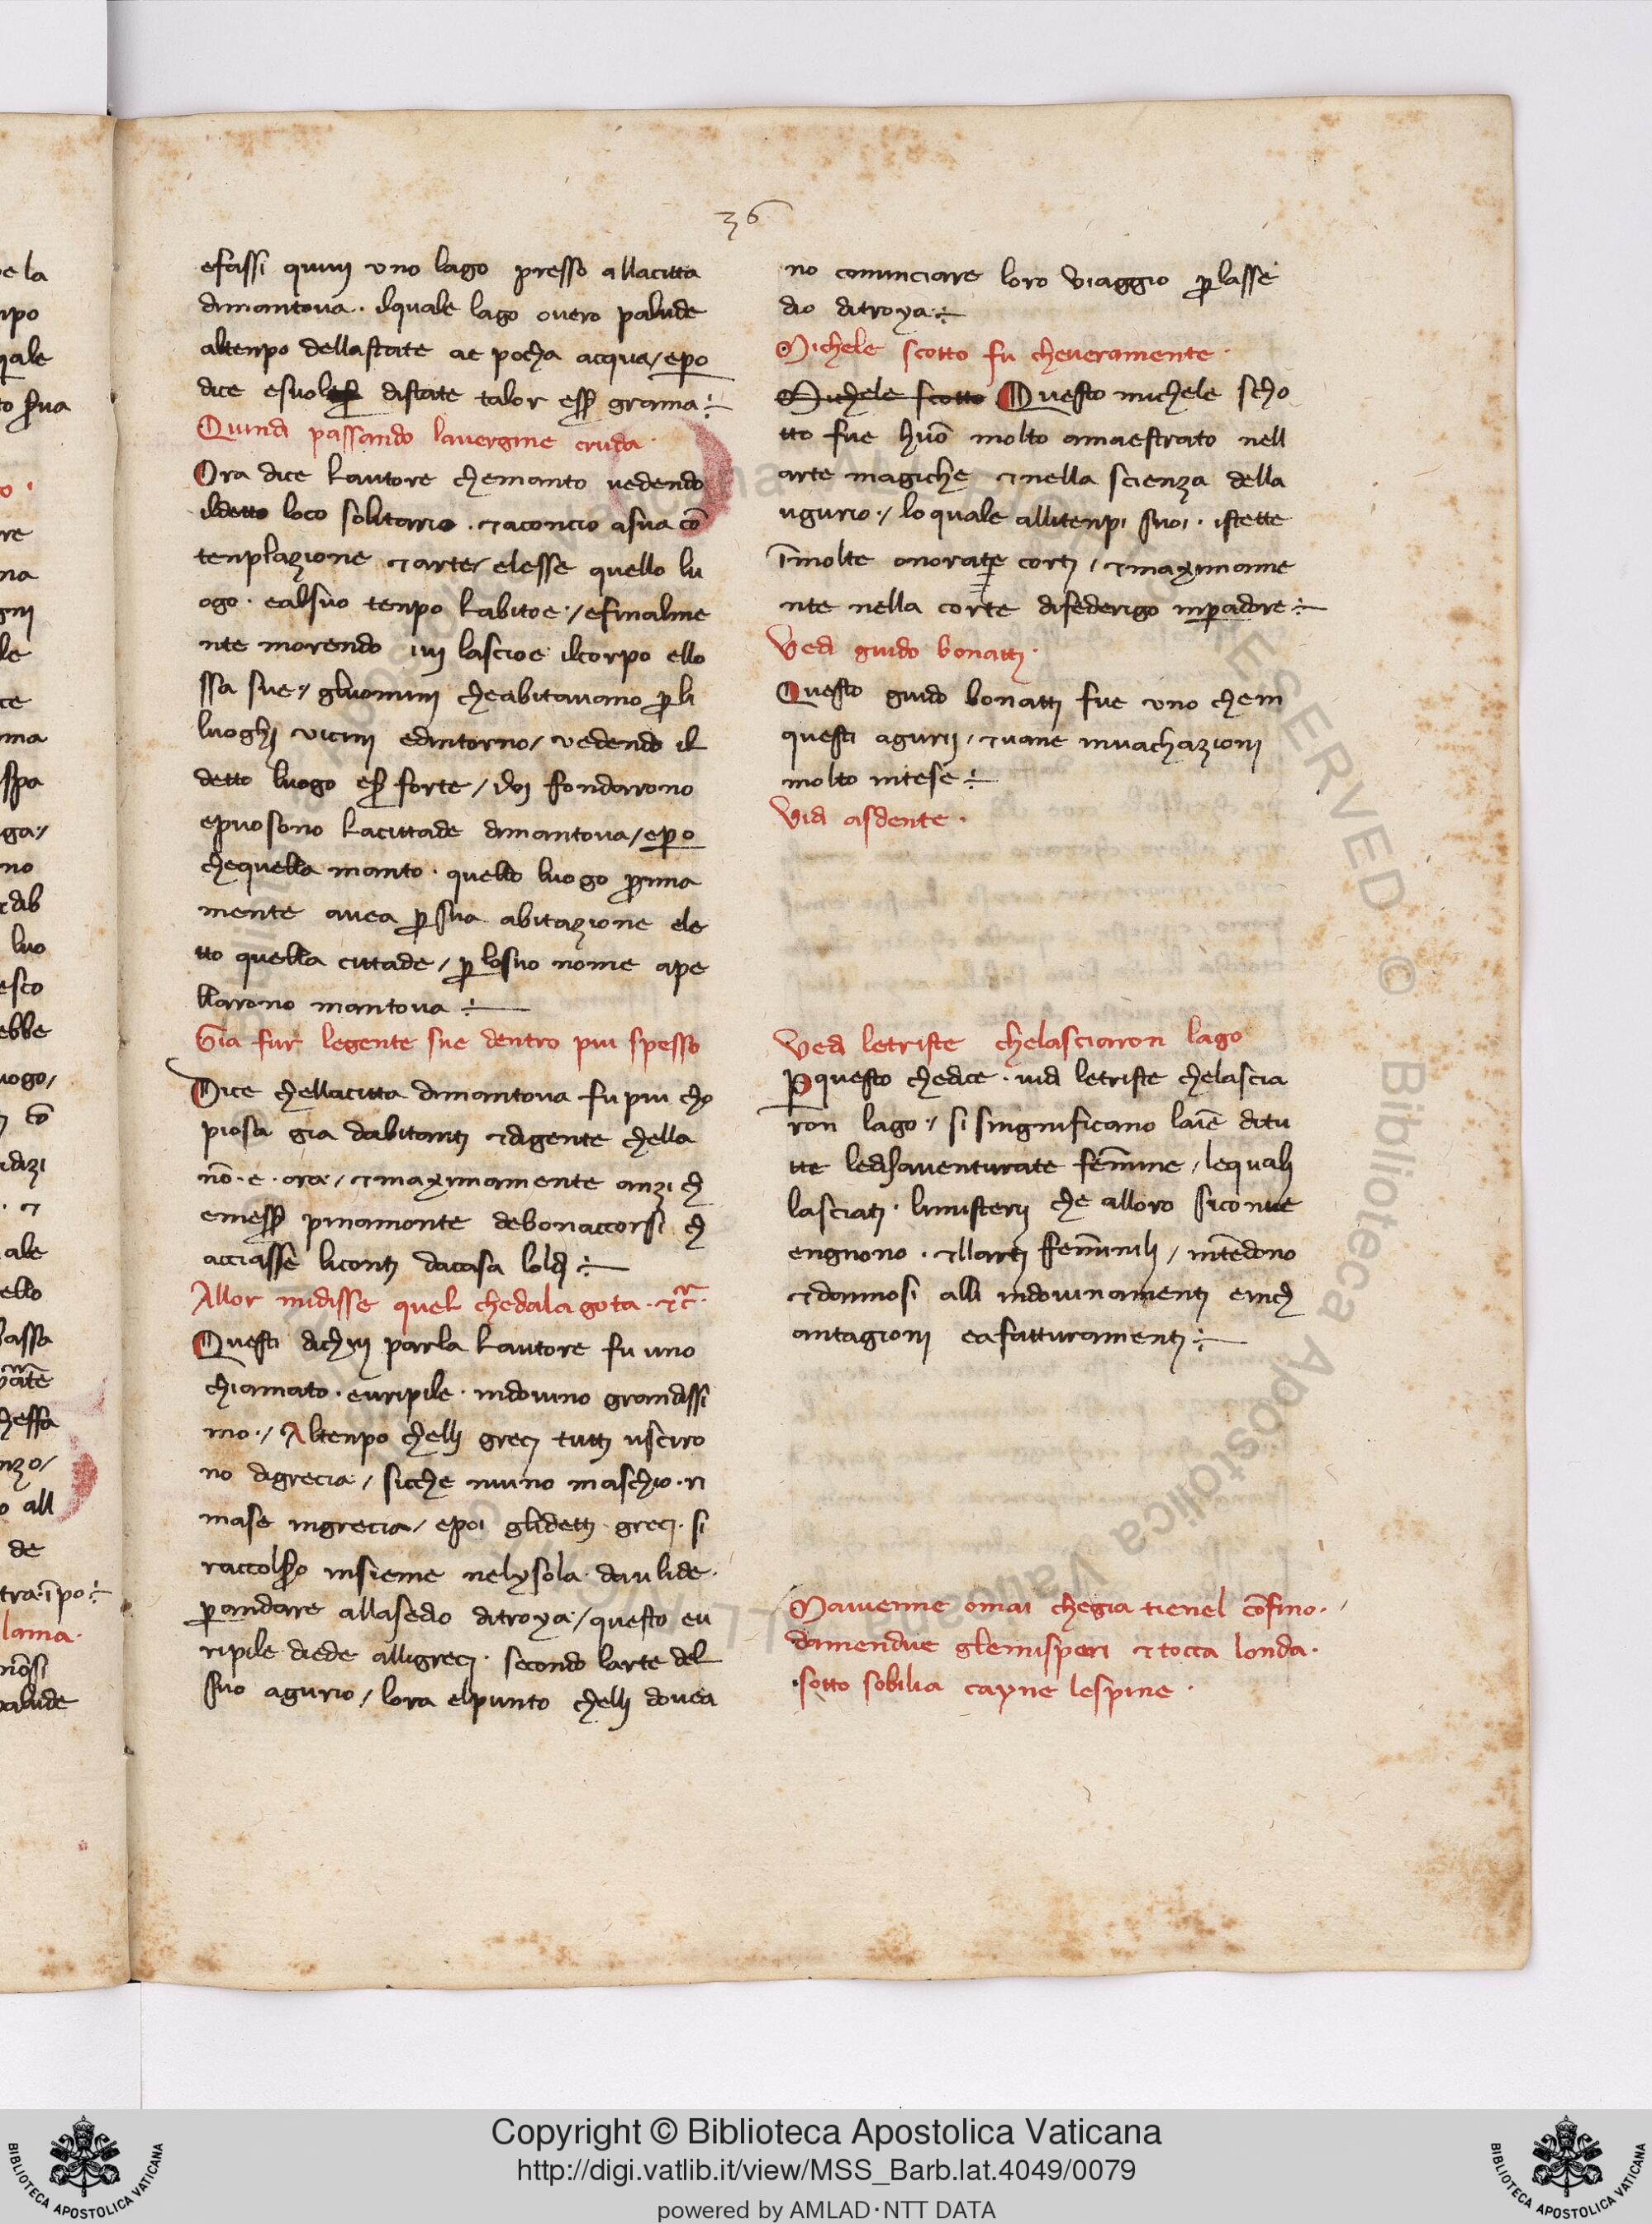 36
efassi quiui uno lago presso allacitta
dimantoua · ilquale lago ouero palude
altenpo dellastate ae pocha acqua / epo
dice esuol distate talor esser grama ÷
Quindi passando lauergine cruda ·
Ora dice lautore chemanto uedendo
ildetto loco solitario · ⁊aconcio asua cō
tenplazione ⁊arte / elesse quello lu
ogo · ealsuo tenpo labitoe · / efinalme
nte morendo iui lascioe ilcorpo ello
ssa sue · / gluomini cheabitauano ꝑ li
luoghi uicini edintorno / uedendo il
detto luogo esser forte / iui ffondarono
epuosono lacittade dimantoua / epo
chequella manto · quello luogo prima
mente auea ꝑ sua abitazione ele
tto quella cittade / ꝑ losuo nome ape
llarono mantoua ÷
Gia fur legente sue dentro piu spesso
Dice chellacitta dimantoua fu piu cho
piosa gia dabitanti ⁊digente chella
nō · e · ora · / ⁊maximamente anzi ch
emesser pinamonte debonaccorsi ch
acciasse liconti dacasa loldi ÷
Allor midisse quel chedalagota · ⁊c ·
Questi dichui parla lautore fu uno
chiamato · euripile · indouino grandissi
mo · / Altenpo chelli greci tutti usciro
no digrecia / sicche niuno maschio · ri
mase ingrecia / epoi glidetti greci · si
raccolsero insieme nelysola daulide ·
ꝑandare allasedio ditroya · / questo eu
ripile diede alligreci · secondo larte del
suo agurio / lora elpunto chelli douea
no cominciare loro uiaggio ꝑ lasse
dio ditroya ÷
Michele scotto fu cheueramente ·
Michele scotto Questo michele scho
tto fue huō molto amaestrato nell
arte magiche ⁊nella scienza della
ugurio · / lo quale allitenpi suoi · istette
ī molte onorate corti / ⁊maximame
nte nella corte difederigo inperadore ÷
Vedi guido bonatti ·
Questo guido bonatti fue uno chem
questi agurii / ⁊uane inuachazioni
molto intese ÷
Vidi asdente ·
Vedi letriste chelasciaron lago
ꝑ questo chedice · uidi letriste chelascia
ron lago · / si singnificano laīe ditu
tte ledisauenturate femīne / lequali
lasciati · limisterii che alloro siconue
engnono · ⁊llarti ffemīnili / intēdono
⁊dannosi alli indouinamenti einch
antagioni eafatturamenti ÷
Mauienne omai chegia tienel cōfino · /
damendue glemisperi ⁊tocca londa ·
· sotto sobilia cayne lespine ·
Copyright © Biblioteca Apostolica Vaticana
http://digi.vatlib.it/view/MSS_Barb.lat.4049/0079
powered by AMLAD·NTT DATA
BIBLIOTECA APOSTOLICA VATICANA
BIBLIOTECA APOSTOLICA VATICANA